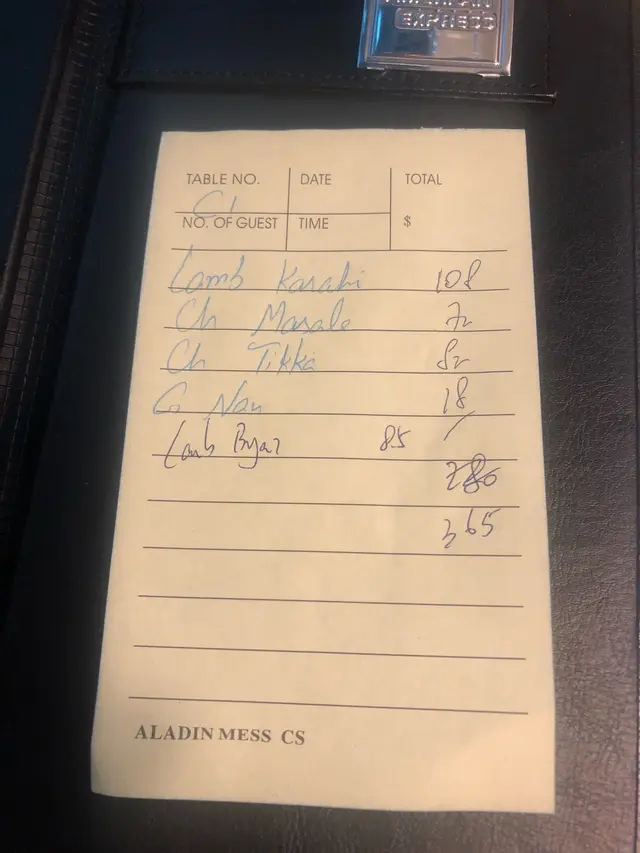 EXPRESS
TABLE NO. DATE TOTAL
C1
NO. OF GUEST TIME $
Lamb Karahi 108
Ch Masala 72
Ch Tikka 82
G Nan 18
Lamb 85
280
365
ALADIN MESS CS